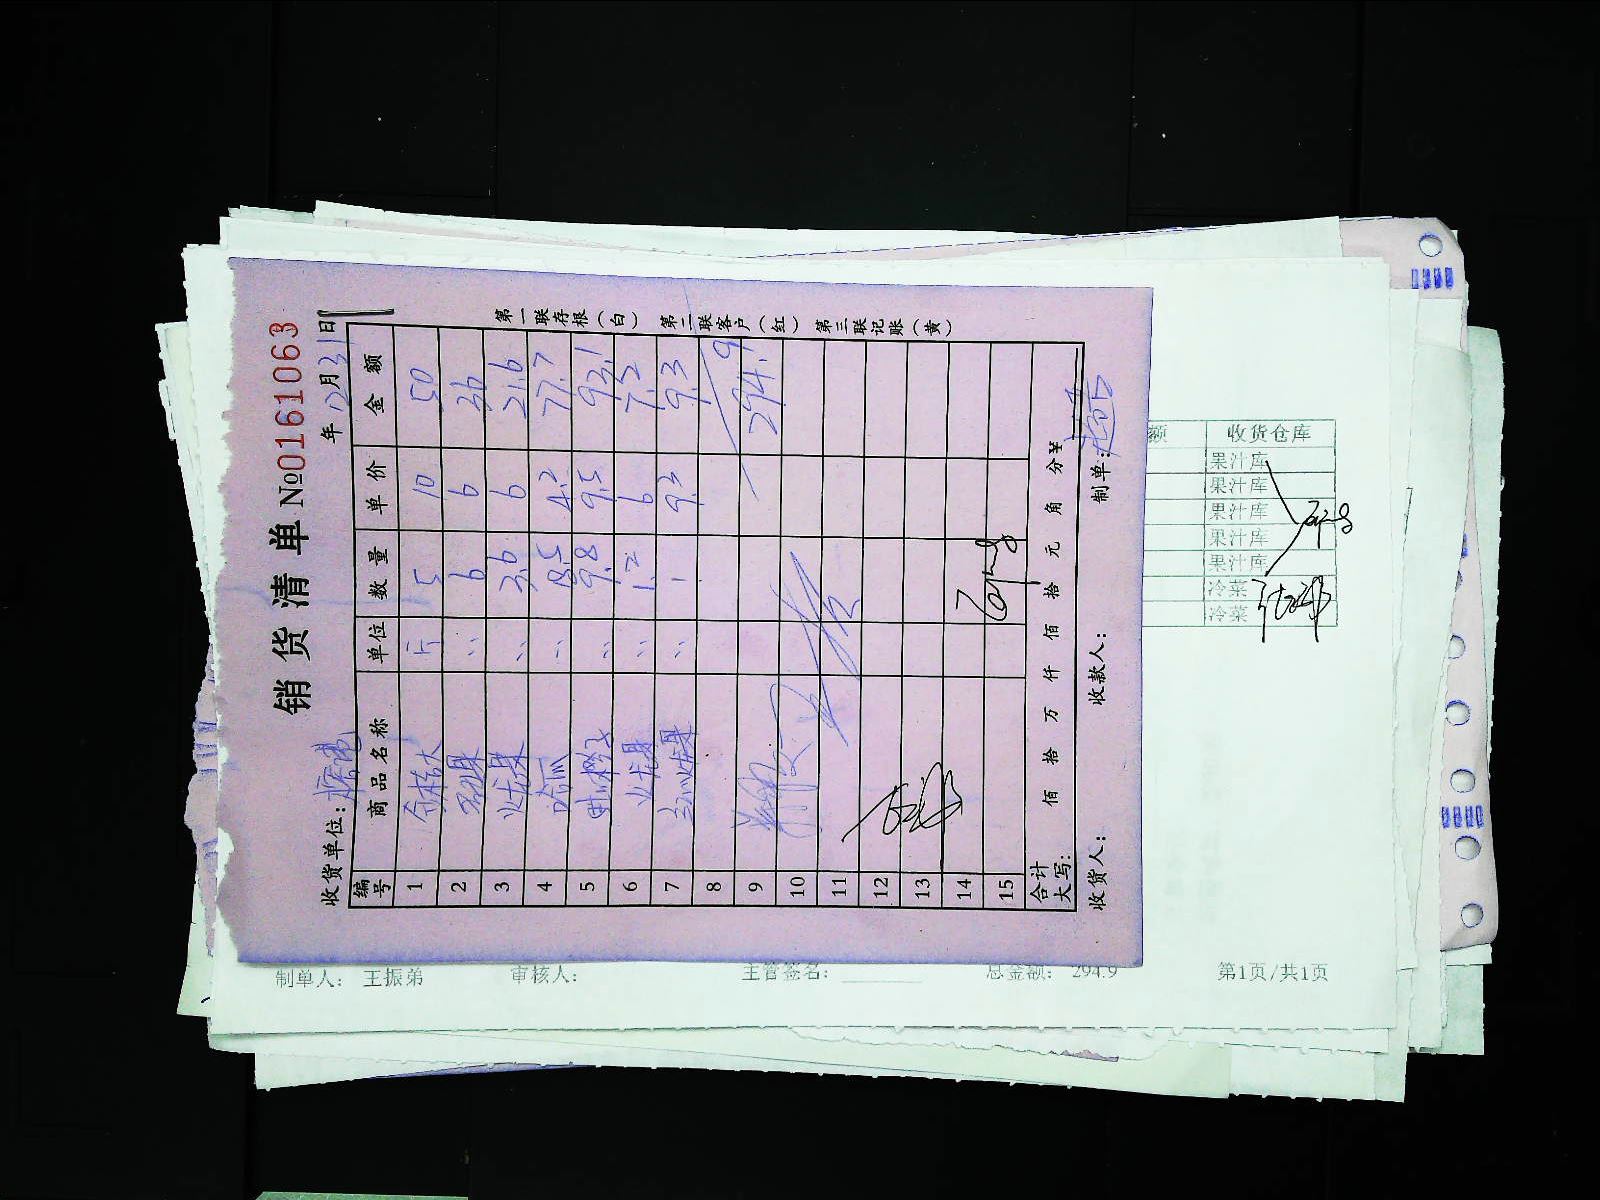 销货清单 №0161063
收货单位: 年 12月31日
编号 商品名称 单位 数量 单价 金额
1 斤 5 10 50
2 〃 6 6 36
3 火龙果 〃 3.6 6 21.6
4 哈瓜 〃 18.5 4.2 77.7
5 〃 9.8 9.5 93.1
6 火龙果 〃 1.2 6 7.2
7 〃 1 9.3 9.3
8
9 294.9
10
11
12
13
14
15
合计大写: 佰 拾 万 仟 佰 拾 元 角 分 ¥
收货人: 收款人: 制单:
第一联存根(白) 第二联客户(红) 第三联记账(黄)
额 收货仓库
果汁库
果汁库
果汁库
果汁库
果汁库
冷菜
冷菜
制单人: 王振弟 审核人: 主管签名: 总金额: 294.9 第1页/共1页